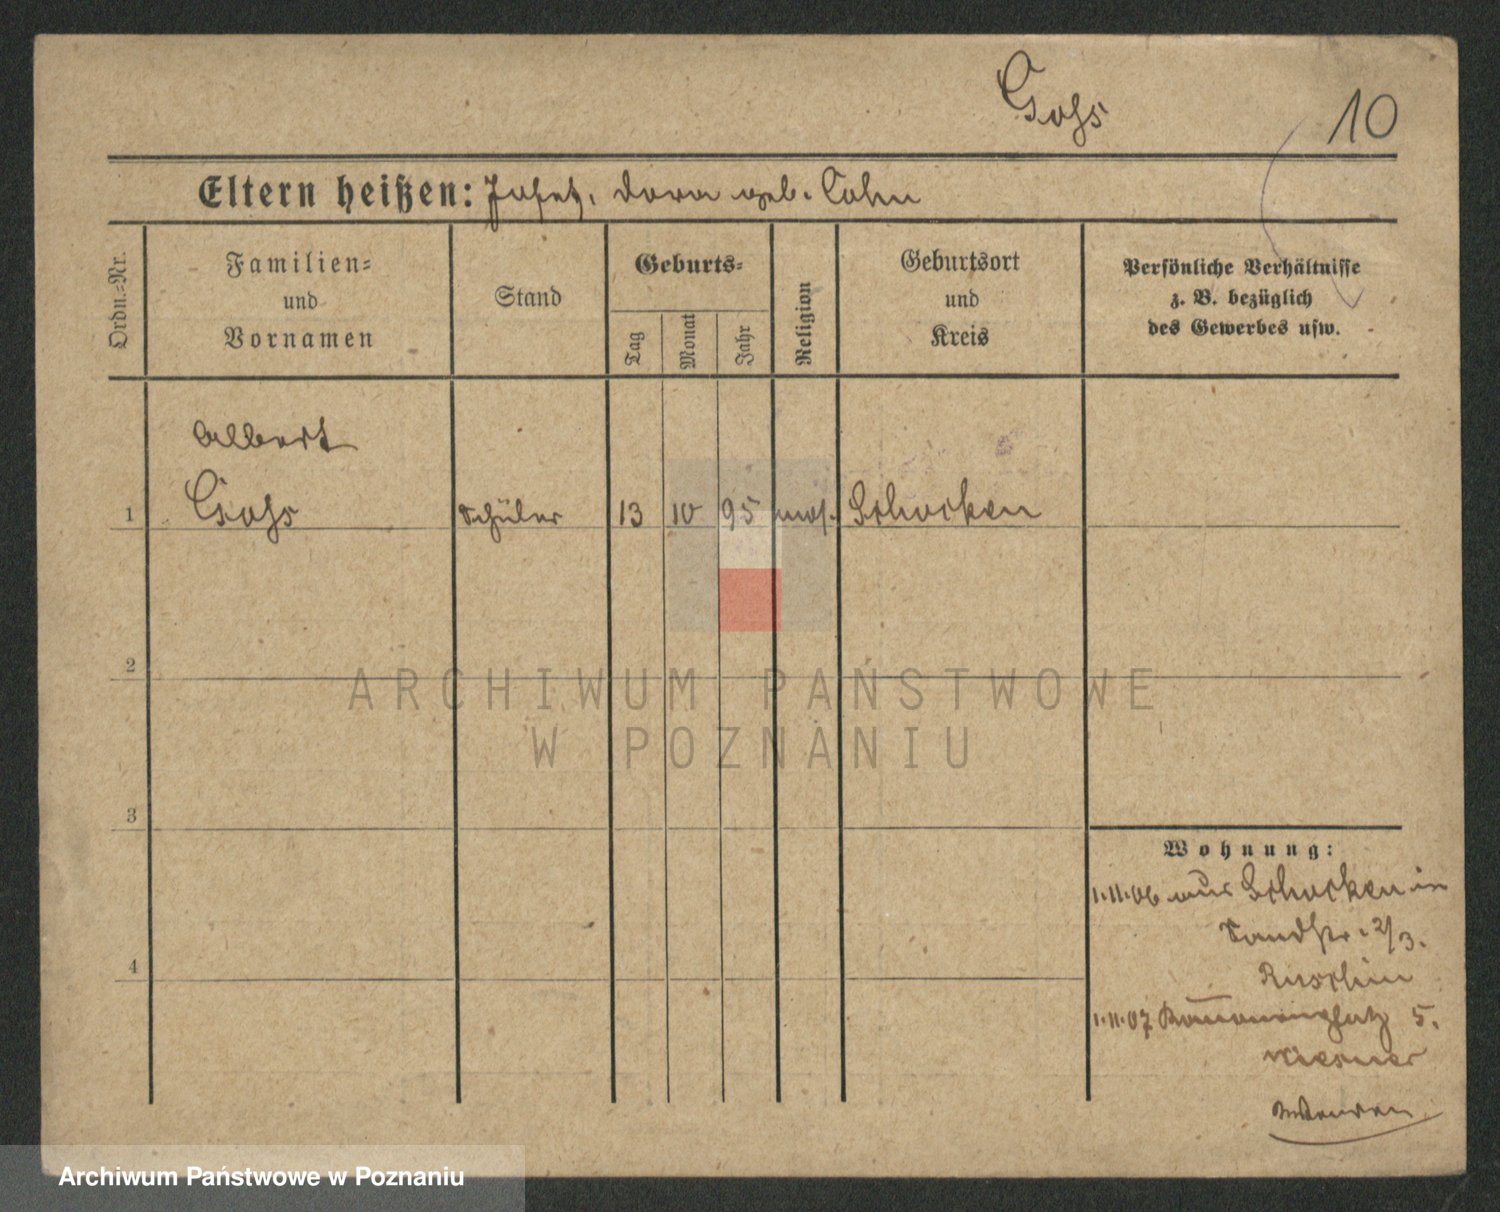 Goss
10
Eltern heißen: Josef, Dora geb. Cohn
Ordn.=Nr.
Familien=
und
Vornamen
Stand
Geburts=
Tag
Monat
Jahr
Religion
Geburtsort
und
Kreis
Persönliche Verhältnisse
z. B. bezüglich
des Gewerbes usw.
Albert
1 Goss Schüler 13 10 95 mos. Schocken
2
3
4
Wohnung:
1.11.06 aus Schocken in
Sandstr. 2/3.
1.11.07 5.
ARCHIWUM PAŃSTWOWE
W POZNANIU
Archiwum Państwowe w Poznaniu